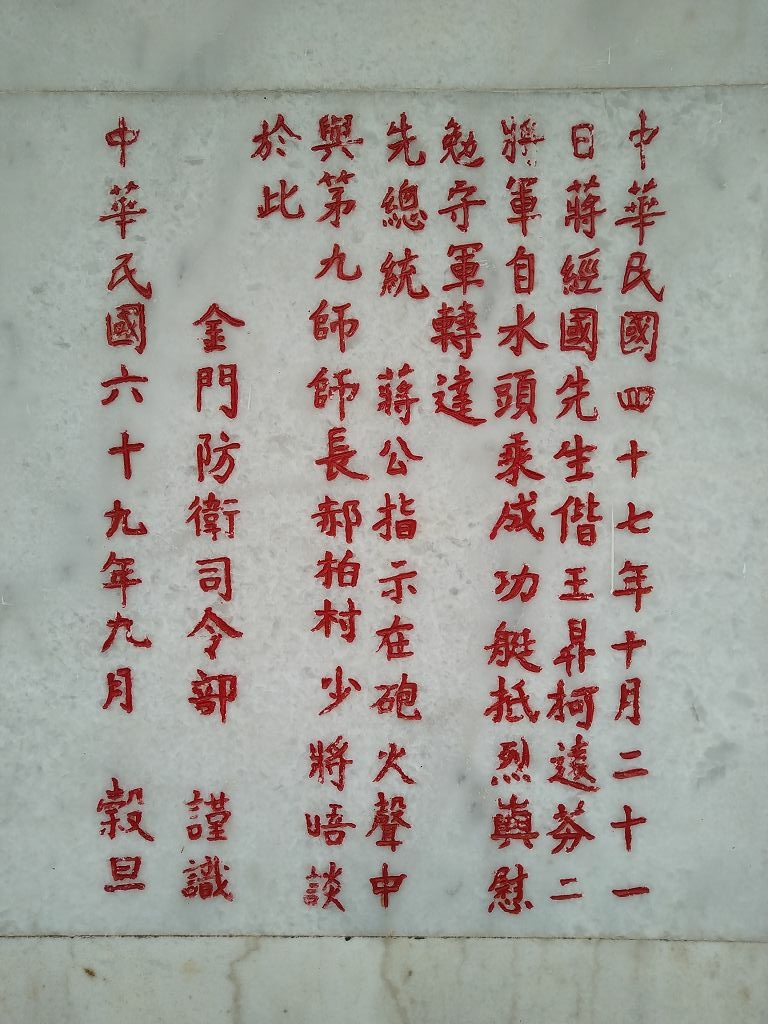 中華民國四十七年十月二十一
日蔣經國先生偕王昇柯遠芬二
將軍自水頭乘成功艇抵烈嶼慰
勉守軍轉達
先總統 蔣公指示在砲火聲中
與第九師師長郝柏村少將晤談
於此
金門防衛司令部 謹識
中華民國六十九年九月 穀旦